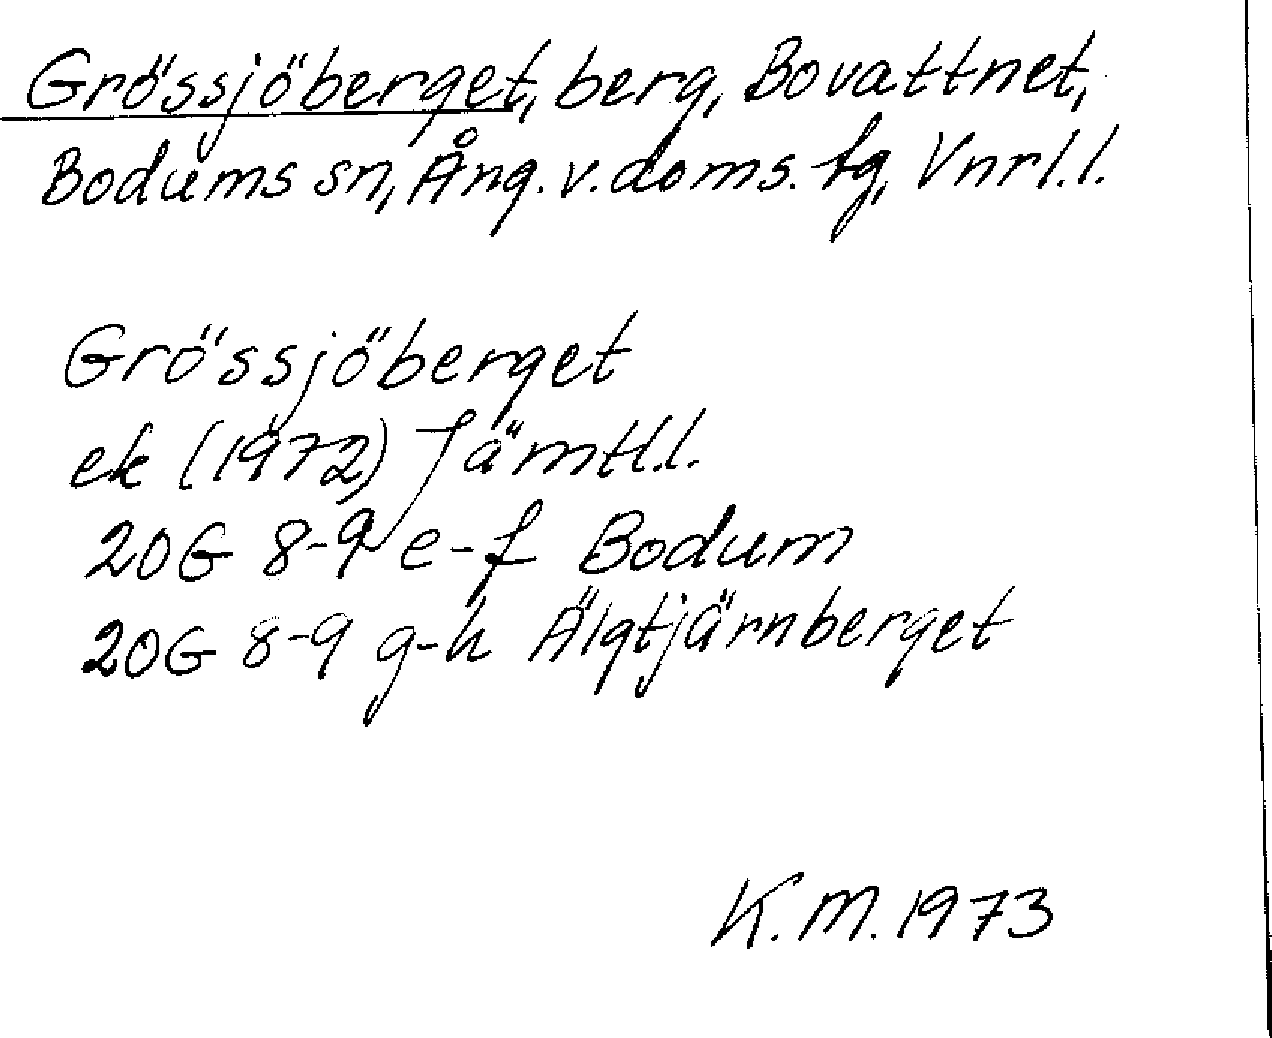 Grössjöberget, berg, Bovattnet,
Bodums sn, Ång. v. doms. tg, Vnrl.l.
Grössjöberget
ek (1972) Jämtl.l.
20G 8-9 e-f Bodum
20G 8-9 g-h Älgtjärnberget
K.M. 1973